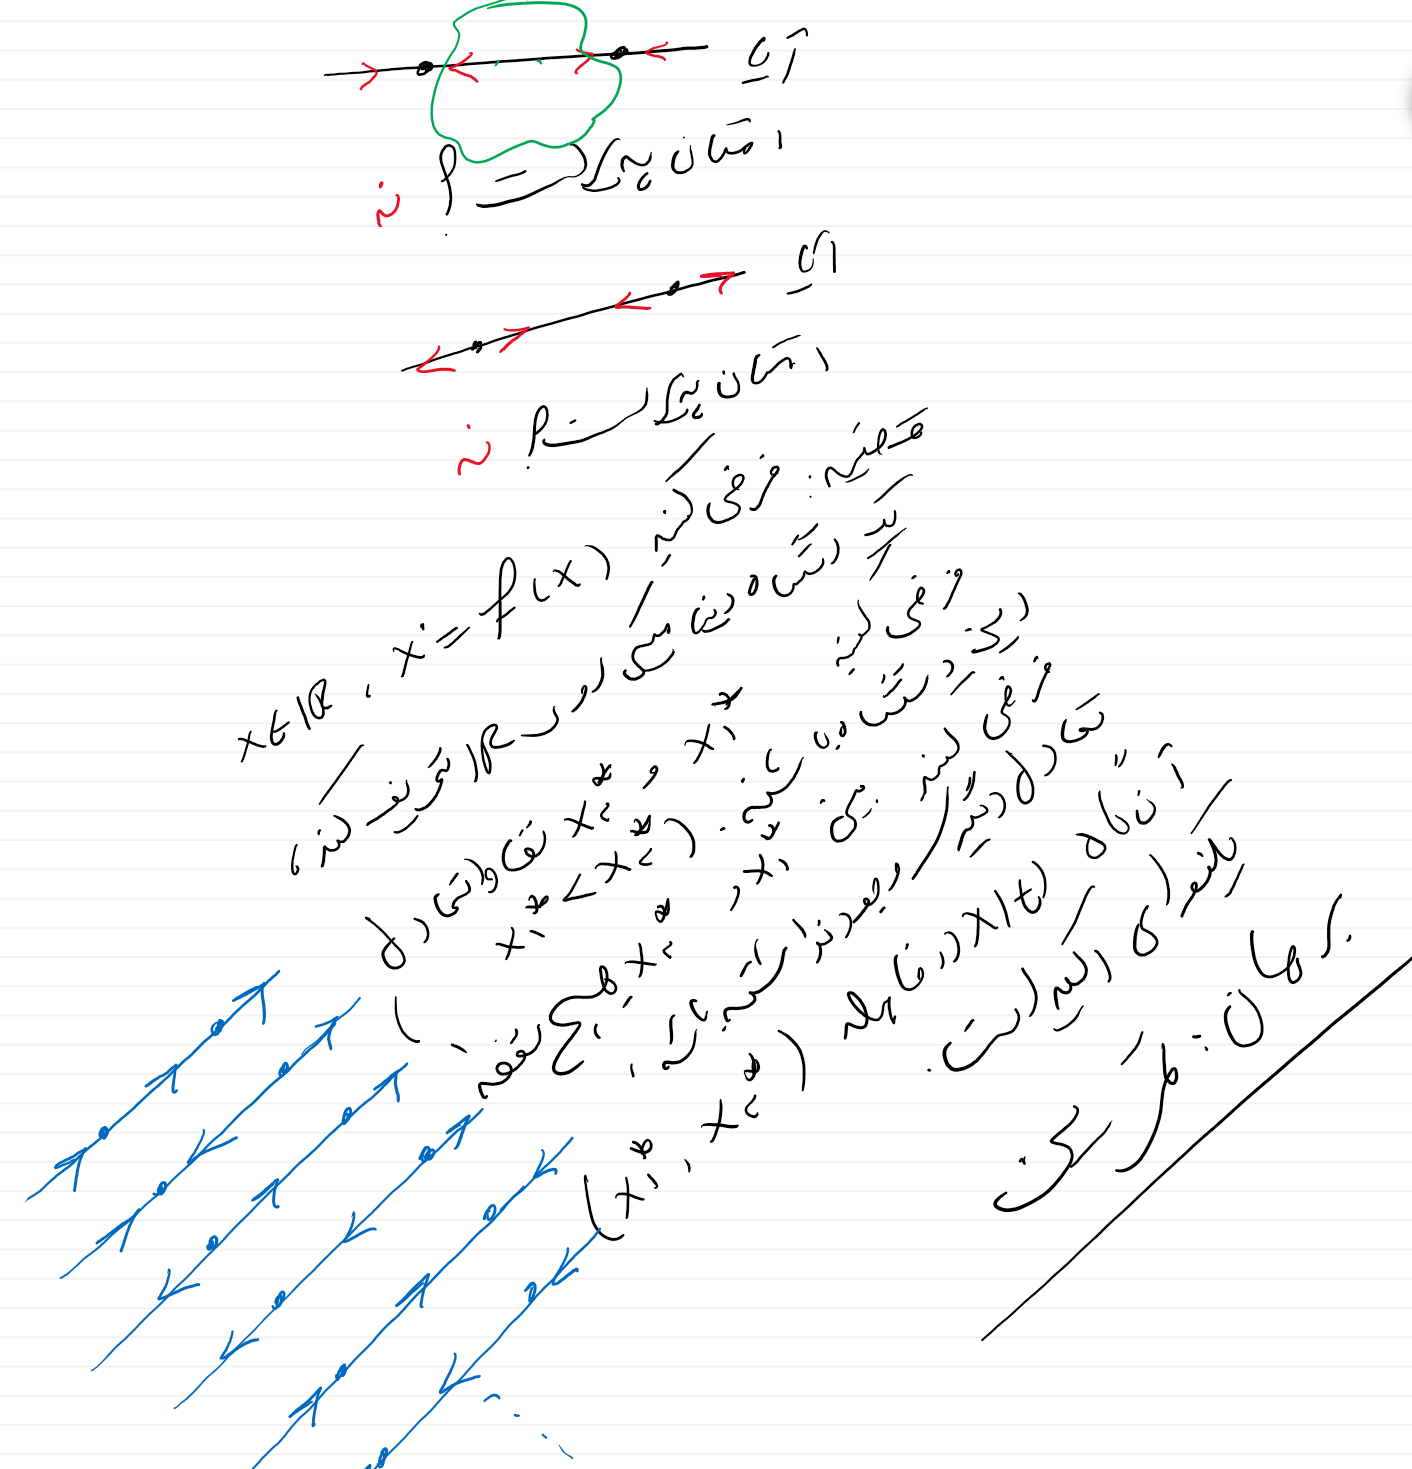 آیا
امکان پذیر است؟ نه
آیا
امکان پذیر است؟ نه
قضیه: فرض کنید x∈ℝ , ẋ = f(x)
یک دستگاه دینامیکی روی ℝ تعریف کند،
فرض کنید x₁* و x₂* نقاط تعادل
این دستگاه باشند. (x₁* < x₂*)
فرض کنید بین x₁* و x₂* هیچ نقطه
تعادل دیگر وجود نداشته باشد،
آن‌گاه x(t) در فاصله (x₁*, x₂*)
یکنوای اکید است.
برهان: تمرین